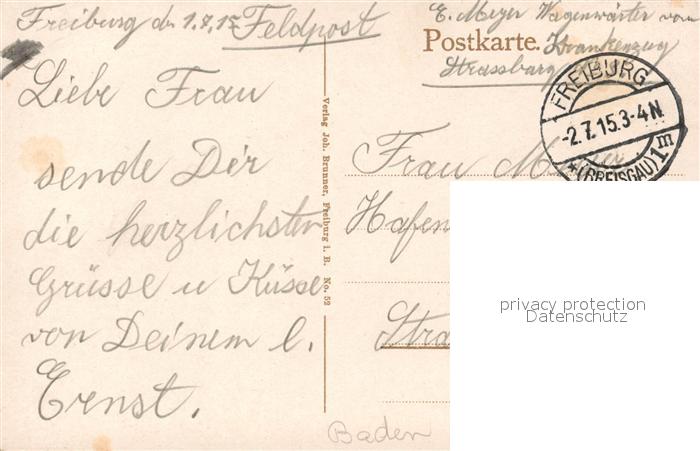 Freiburg den 1.7.15 Feldpost
E. Meyer Wagenwärter vom
Krankenzug
Strassburg
Postkarte.
FREIBURG
-2.7.15.3-4N
*(BREISGAU)1E
Liebe Frau
sende Dir
die herzlichsten
Grüsse u Küsse
von Deinem l.
Ernst.
Verlag Joh. Brunner, Freiburg i. B. No. 52
Frau M
Hafen
Stra
Baden
privacy protection
Datenschutz